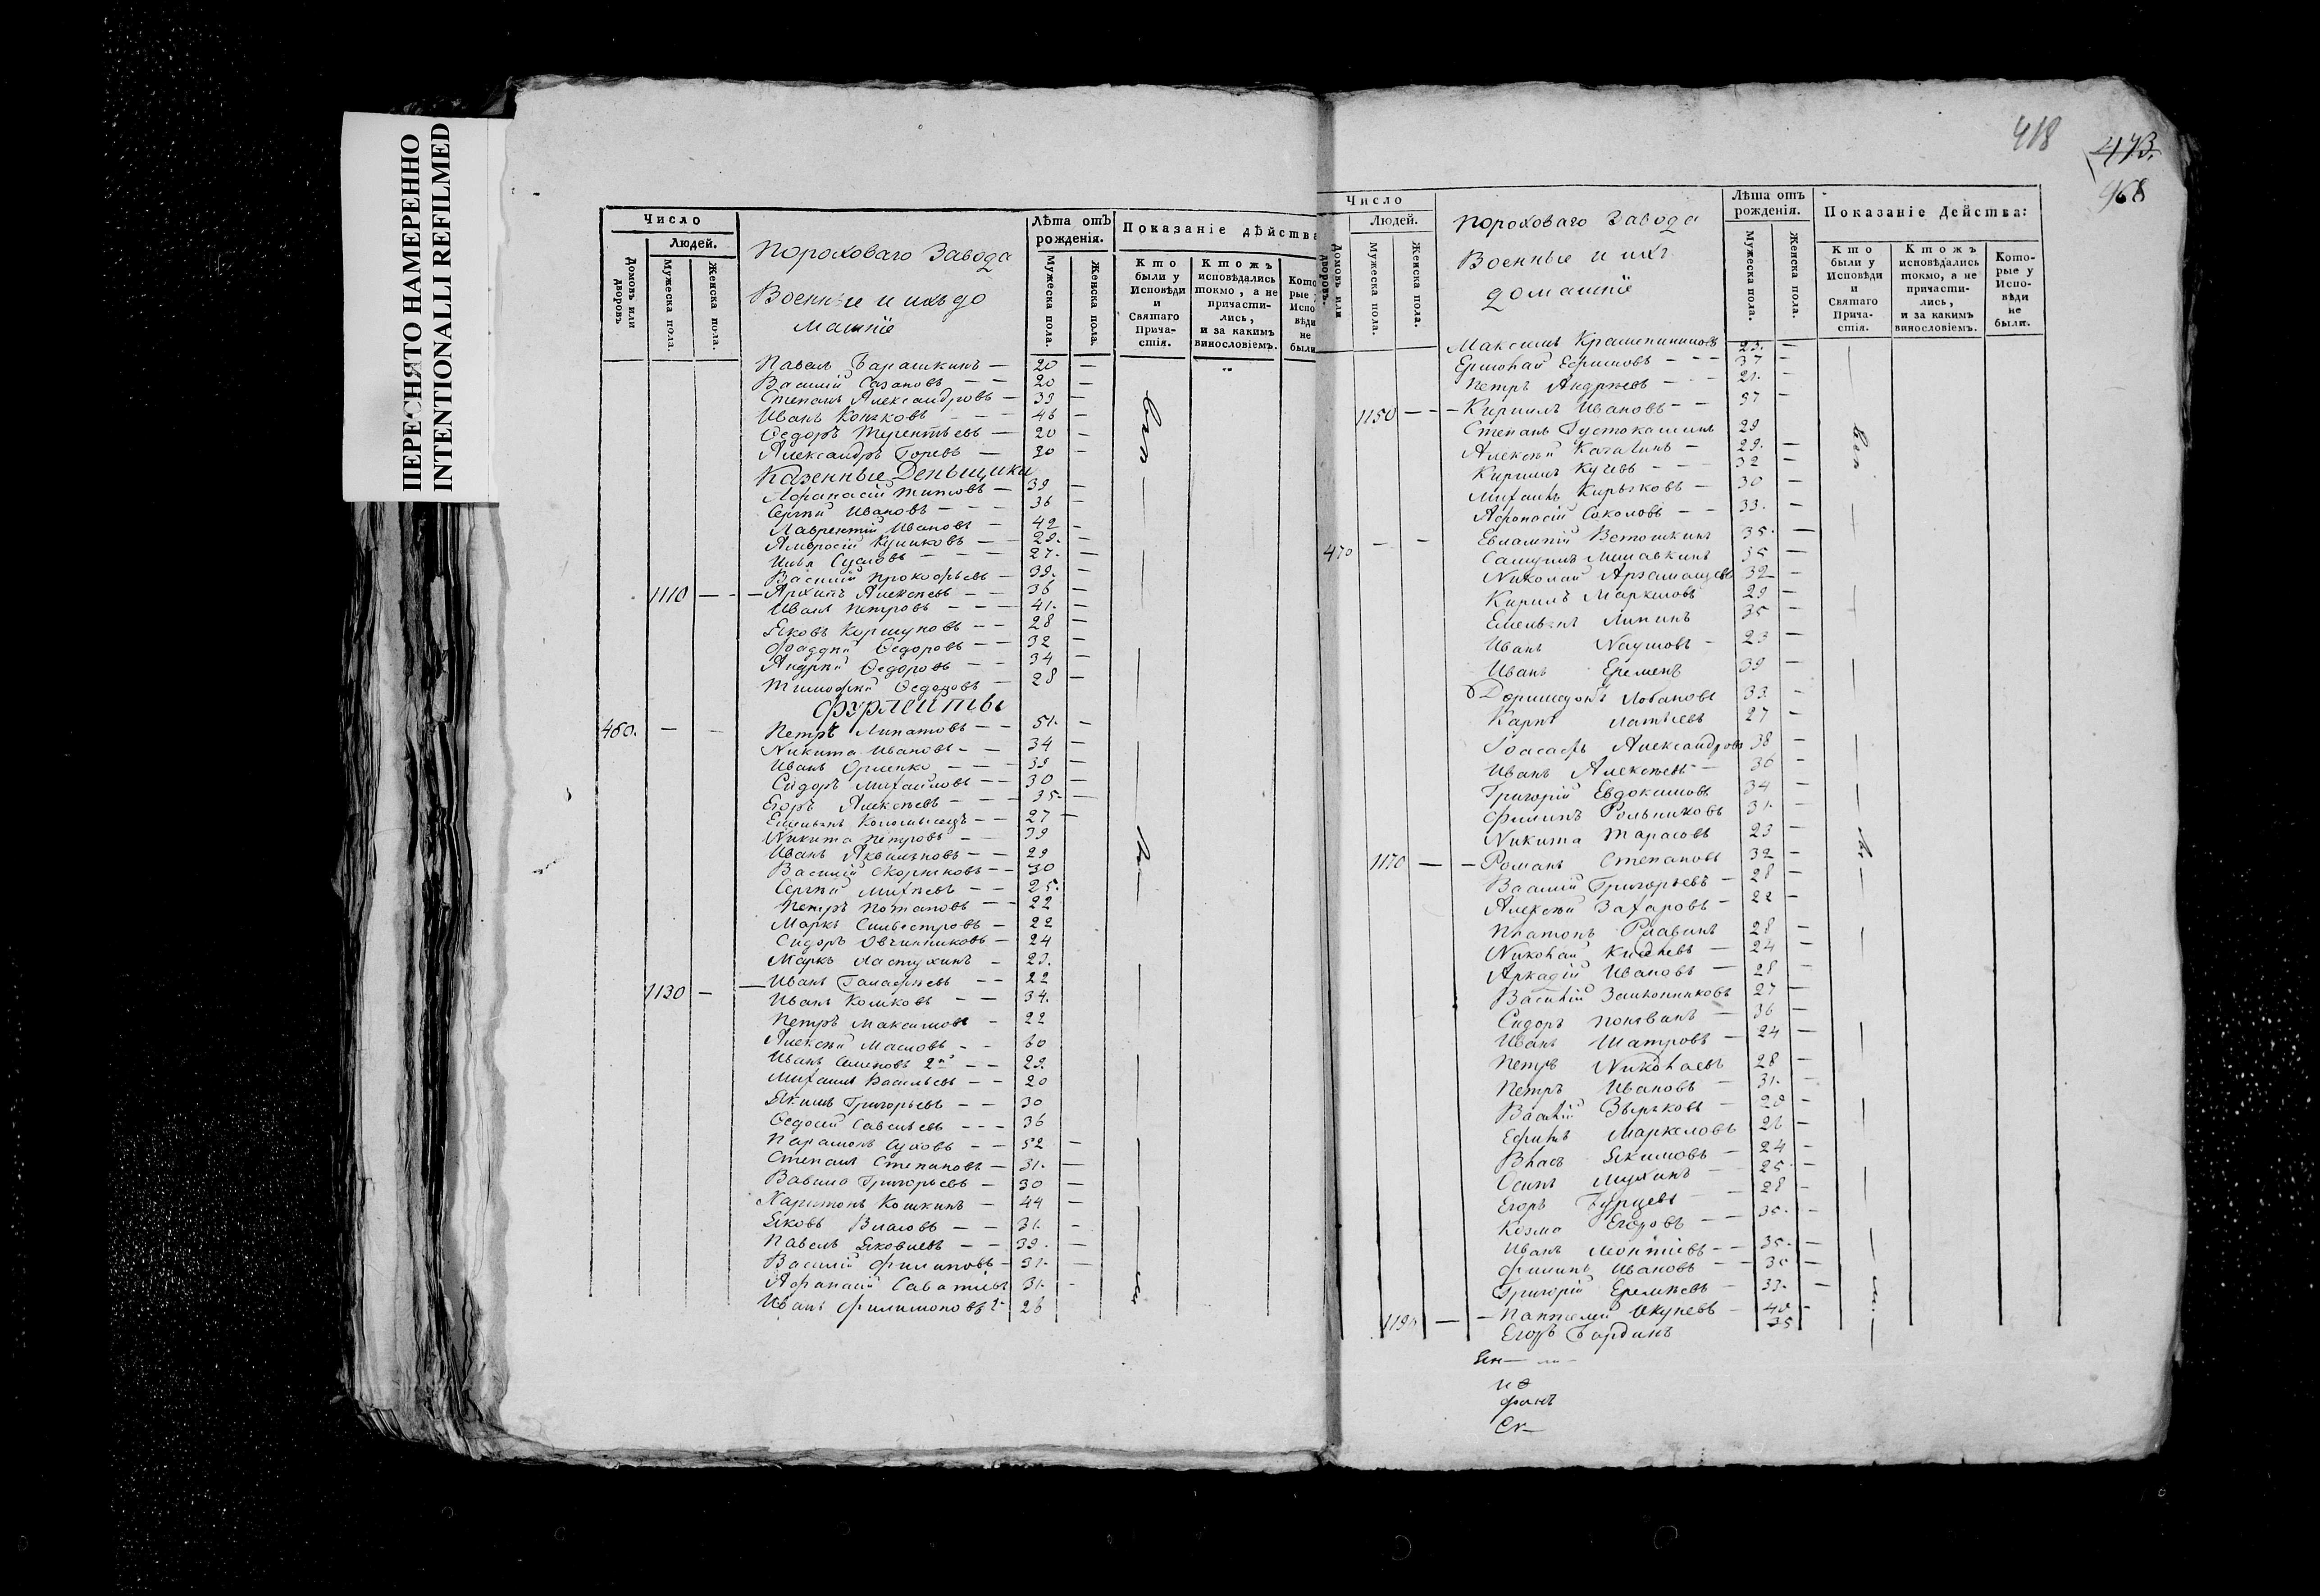 ПЕРЕСНЯТО НАМЕРЕННО
INTENTIONALLI REFILMED
Число
Людей.
Домовъ или дворовъ
Мужеска пола.
Женска пола.
Пороховаго Завода
Военные и ихъ до
машніе
Лѣта отъ рожденія.
Мужеска пола.
Женска пола.
Показаніе дѣйства
Кто были у Исповѣди и Святаго Прича-стія.
Ктожъ исповѣдались токмо, а не причасти-лись, и за какимъ винословіемъ.
Кото рые Испо вѣди не были
Павелъ Барашкинъ — 20 —
Василій Сазановъ — — 20 —
Степанъ Александровъ — 39 —
Иванъ Коньковъ — — — 46 —
Ѳедоръ Терентьевъ — 20 —
Александръ Горевъ — 20 —
Казенные Деньщики
Афанасій Титовъ — 39 —
Сергѣй Ивановъ — — — 36 —
Лаврентій Ивановъ — 42 —
Амвросій Куликовъ — — 29. —
Илья Сусловъ — — — 27. —
Василій Прокофьевъ — 39. —
1110 — — — Архипъ Алексѣевъ — — 36 —
Иванъ Петровъ — — — 41. —
Яковъ Коршуновъ — — 28 —
Фаддѣй Ѳедоровъ — — 32 —
Андрѣй Ѳедоровъ — — 34 —
Тимофѣй Ѳедоровъ — 28 —
Фурлейты
460. — — Петръ Липатовъ — — 51. —
Никита Ивановъ — — 34 —
Иванъ Орленко — — — 39 —
Сидоръ Михайловъ — — 30 —
Егоръ Алексѣевъ — — — 35. —
Емельянъ Коломыецъ — — 27 —
Никита Петровъ — 39
Иванъ Аквильновъ — — 29
Василій Скорняковъ — — 30
Сергѣй Михѣевъ — — 25.
Петръ Потаповъ — — 22
Маркъ Сильвестровъ — 22
Сидоръ Овчинниковъ — 24
Маркъ Ластухинъ — 23.
1130 — — Иванъ Галафѣевъ — — 22
Иванъ Колковъ — — 34.
Петръ Максимовъ — 22
Алексѣй Масловъ — — 60
Иванъ Семеновъ 2й — — 29.
Михаилъ Васильевъ — — 20
Якимъ Григорьевъ — — 30
Ѳедосѣй Савельевъ — — — 36
Парамонъ Суховъ — — 52 —
Степанъ Степановъ — 31. —
Вавила Григорьевъ — 30 —
Харитонъ Кошкинъ — 44 —
Яковъ Власовъ — — 31. —
Павелъ Яковлевъ — — 39. —
Василій Филиповъ — 31. —
Афанасій Саватѣевъ 31. —
Иванъ Филимоновъ 26
418
473.
968
Число
Людей.
Домовъ или дворовъ.
Мужеска пола.
Женска пола.
Пороховаго Завода
Военные и ихъ
домашніе
Лѣта отъ рожденія.
Мужеска пола.
Женска пола.
Показаніе Дѣйства:
Кто были у Исповѣди и Святаго Прича-стія.
Ктожъ исповѣдались токмо, а не причасти-лись, и за какимъ винословіемъ.
Кото-рые у Испо-вѣди не были.
Максимъ Крашенинниковъ 23. —
Ермолай Ефимовъ — — — 37 —
Петръ Андрѣевъ — — 21. —
1150 — — — Кирилъ Ивановъ — — 37 —
Степанъ Густокашинъ 29
Алексѣй Качалинъ — 29. —
Кирилъ Кучевъ — — — 32 —
Михаилъ Кирьяковъ — 30 —
Афанасій Соколовъ — — 33. —
470 — — Евлампій Ветошкинъ 35. —
Самуилъ Мишавкинъ 35 —
Николай Арзамасцевъ 32 —
Кирилъ Маркеловъ 29 —
Емельянъ Липинъ 35 —
Иванъ Наумовъ — 23 —
Иванъ Еремѣевъ 39 —
Доримедонтъ Лобановъ 33. —
Карпъ Лаптѣевъ 27 —
Іоасафъ Александровъ 38 —
Иванъ Алексѣевъ — 36 —
Григорій Евдокимовъ 34 —
Филипъ Рольниковъ 31. —
Никита Тарасовъ 23 —
1170 — — Романъ Степановъ 32 —
Василій Григорьевъ — 28 —
Алексѣй Захаровъ — 22 —
Платонъ Главинъ 28 —
Николай Киселевъ — 24 —
Аркадій Ивановъ — 28 —
Василій Замошниковъ 27 —
Сидоръ Поливанъ — 36 —
Иванъ Шатровъ — 24 —
Петръ Николаевъ 28 —
Петръ Ивановъ — 31. —
Василій Зыряковъ — 20 —
Ефимъ Маркеловъ 26 —
Власъ Якимовъ — 24 —
Осипъ Мухинъ — 25. —
Егоръ Бурцевъ — 28 —
Козма Егоровъ — — 35. —
Иванъ Леонтіевъ — — 35. —
Филипъ Ивановъ — — 35 —
Григорій Еремѣевъ — 33. —
1190 — — Пантелей Окуневъ — 40 —
Егоръ Бардинъ 35